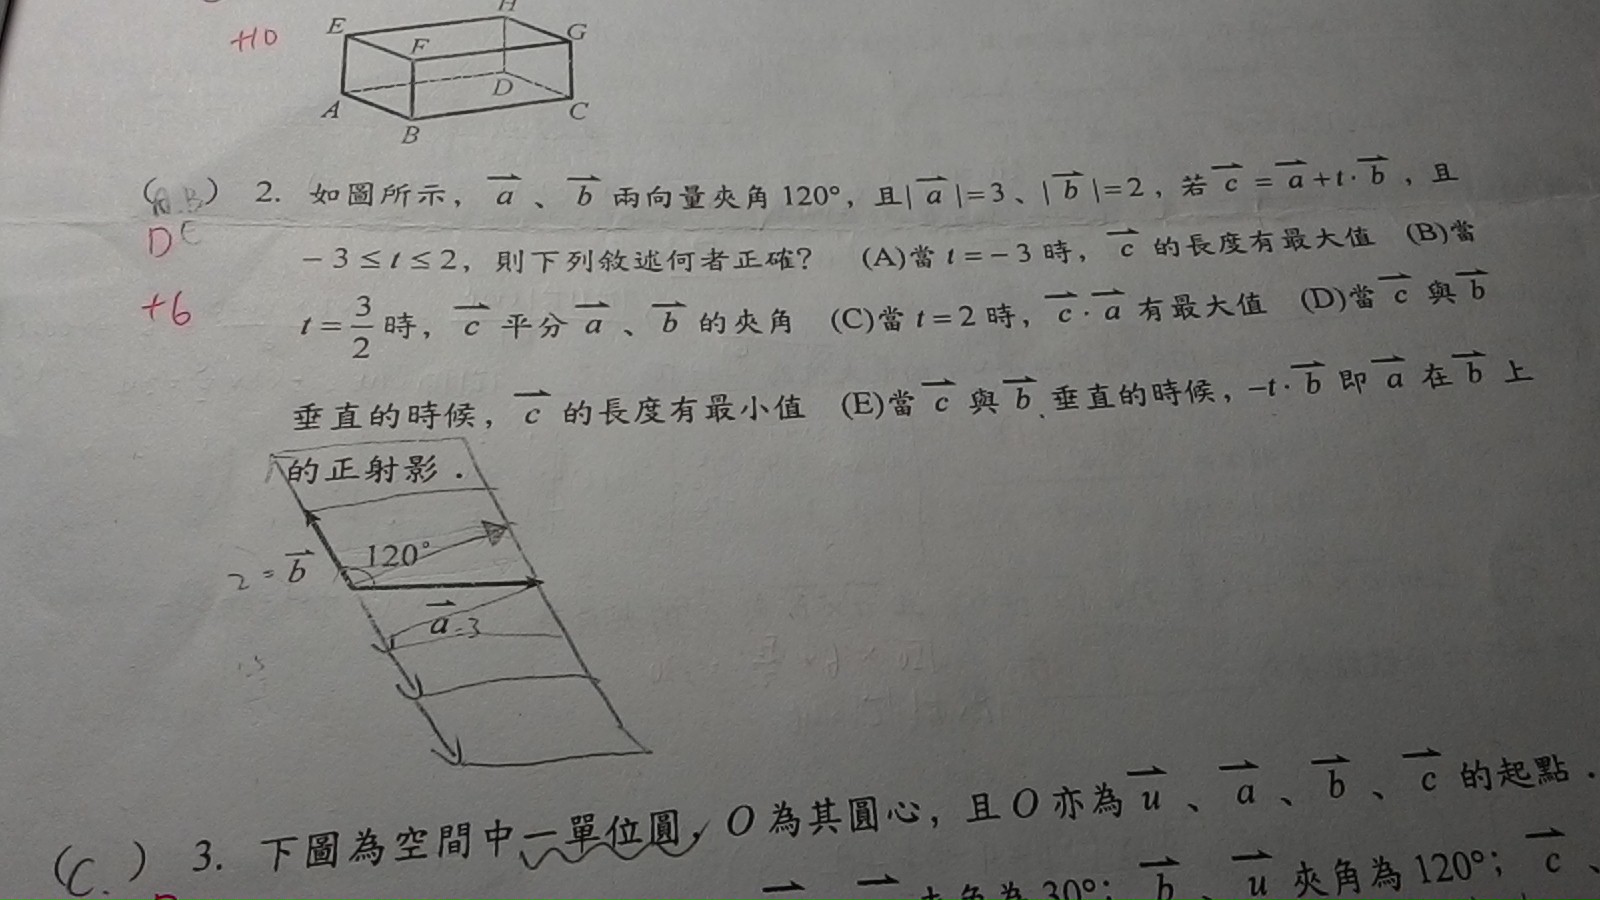 H
E
+10
F
G
D
A
C
B
(A.B) 2. 如圖所示，a、b 兩向量夾角120°，且|a|=3、|b|=2，若 c = a+t·b，且
DC
-3≤t≤2，則下列敘述何者正確？ (A)當 t=-3 時，c 的長度有最大值 (B)當
+6
t=3/2 時，c 平分 a、b 的夾角 (C)當 t=2 時，c·a 有最大值 (D)當 c 與 b
垂直的時候，c 的長度有最小值 (E)當 c 與 b 垂直的時候，-t·b 即 a 在 b 上
的正射影．
120°
2=b
a=3
(C.) 3. 下圖為空間中一單位圓，O 為其圓心，且 O 亦為 u、a、b、c 的起點．
夾角為30°；b、u 夾角為120°；c、